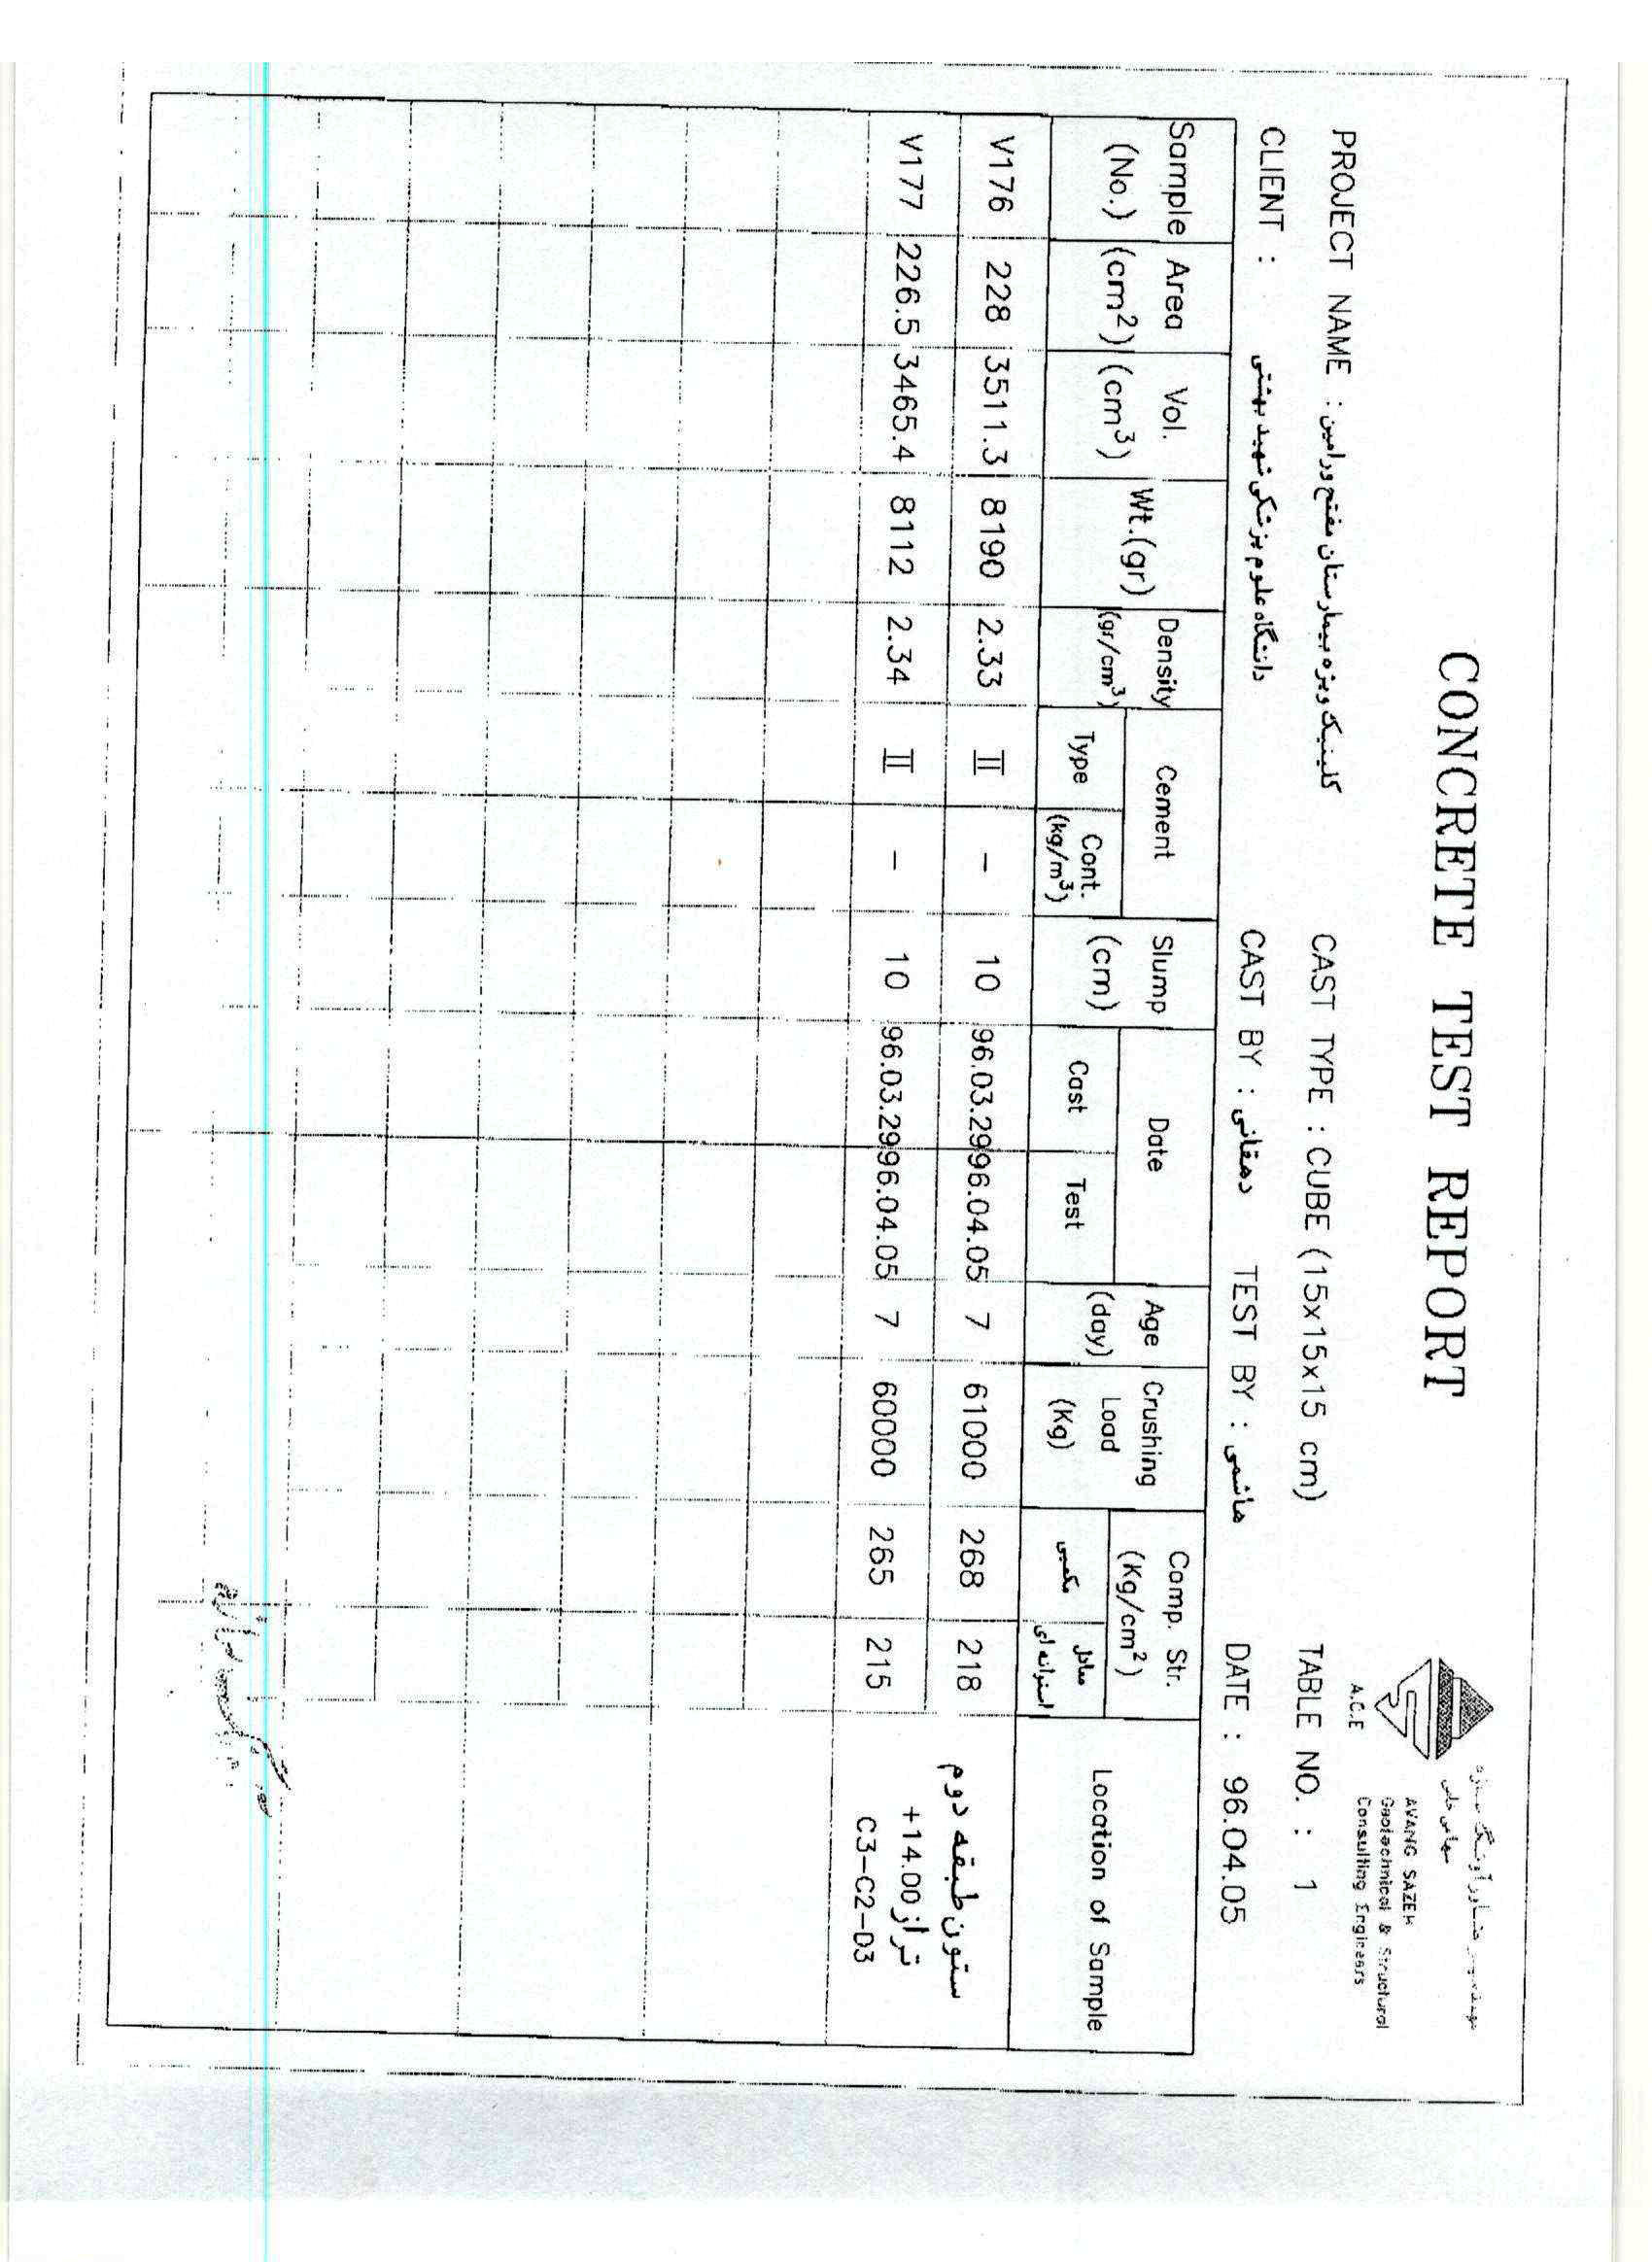 CONCRETE TEST REPORT
A.C.E
AVANG SAZEH
Geotechnical & Structural
Consulting Engineers
PROJECT NAME : کلینیک ویژه بیمارستان مفتح ورامین
CAST TYPE : CUBE (15x15x15 cm)
TABLE NO. : 1
CLIENT : دانشگاه علوم پزشکی شهید بهشتی
CAST BY : دهقانی
TEST BY : هاشمی
DATE : 96.04.05
Sample (No.) | Area (cm²) | Vol. (cm³) | Wt.(gr) | Density (gr/cm³) | Cement Type | Cont. (kg/m³) | Slump (cm) | Date Cast | Test | Age (day) | Crushing Load (Kg) | Comp. Str. (Kg/cm²) مکعبی | معادل استوانه ای | Location of Sample
V176 228 3511.3 8190 2.33 II - 10 96.03.29 96.04.05 7 61000 268 218 ستون طبقه دوم
V177 226.5 3465.4 8112 2.34 II - 10 96.03.29 96.04.05 7 60000 265 215 تراز +14.00
C3-C2-D3